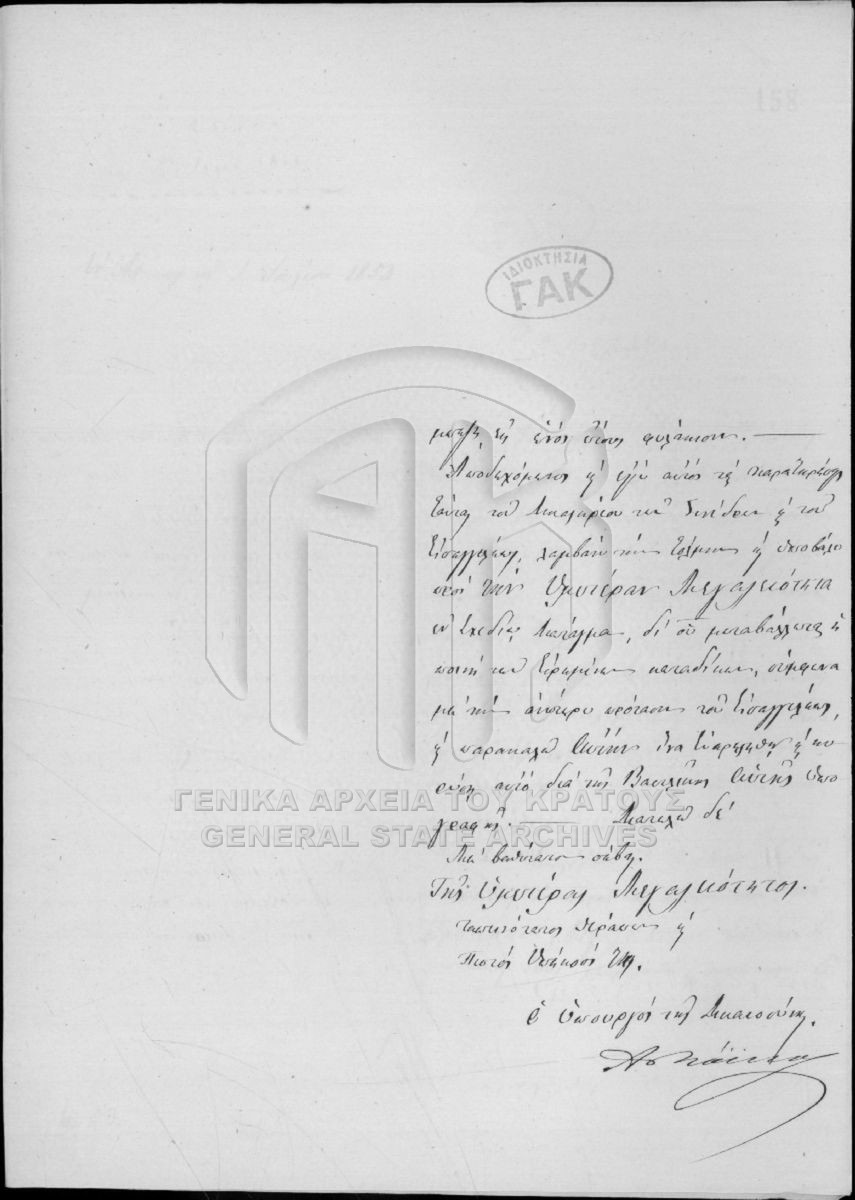 158
ΙΔΙΟΚΤΗΣΙΑ
ΓΑΚ
ἑνὸς ἔτους φυλάκισιν.
Ἀποδεχόμενος καὶ ἐγὼ αὐτὸς τὰς παρατηρήσεις
ταύτας τοῦ Δικαστηρίου τῶν Συνέδρων καὶ τοῦ
Εἰσαγγελέως, λαμβάνω τὴν τόλμην νὰ ὑποβάλω
πρὸς τὴν Ὑμετέραν Μεγαλειότητα
ἐν σχεδίῳ Διάταγμα, δι' οὗ μεταβάλλεται ἡ
ποινὴ τῶν εἰρημένων καταδίκων, σύμφωνα
μὲ τὴν ἀνωτέρω πρότασιν τοῦ Εἰσαγγελέως,
καὶ παρακαλῶ Αὐτὴν ἵνα εὐαρεστηθῇ νὰ κυ
ρώσῃ αὐτὸ διὰ τῆς Βασιλικῆς Αὐτῆς ὑπο
γραφῆς. Διατελῶ δὲ
Μὲ βαθύτατον σέβας.
Τῆς Ὑμετέρας Μεγαλειότητος.
ταπεινότατος θεράπων καὶ
πιστὸς ὑπήκοός της.
Ὁ Ὑπουργὸς τῆς Δικαιοσύνης.
ΓΕΝΙΚΑ ΑΡΧΕΙΑ ΤΟΥ ΚΡΑΤΟΥΣ
GENERAL STATE ARCHIVES